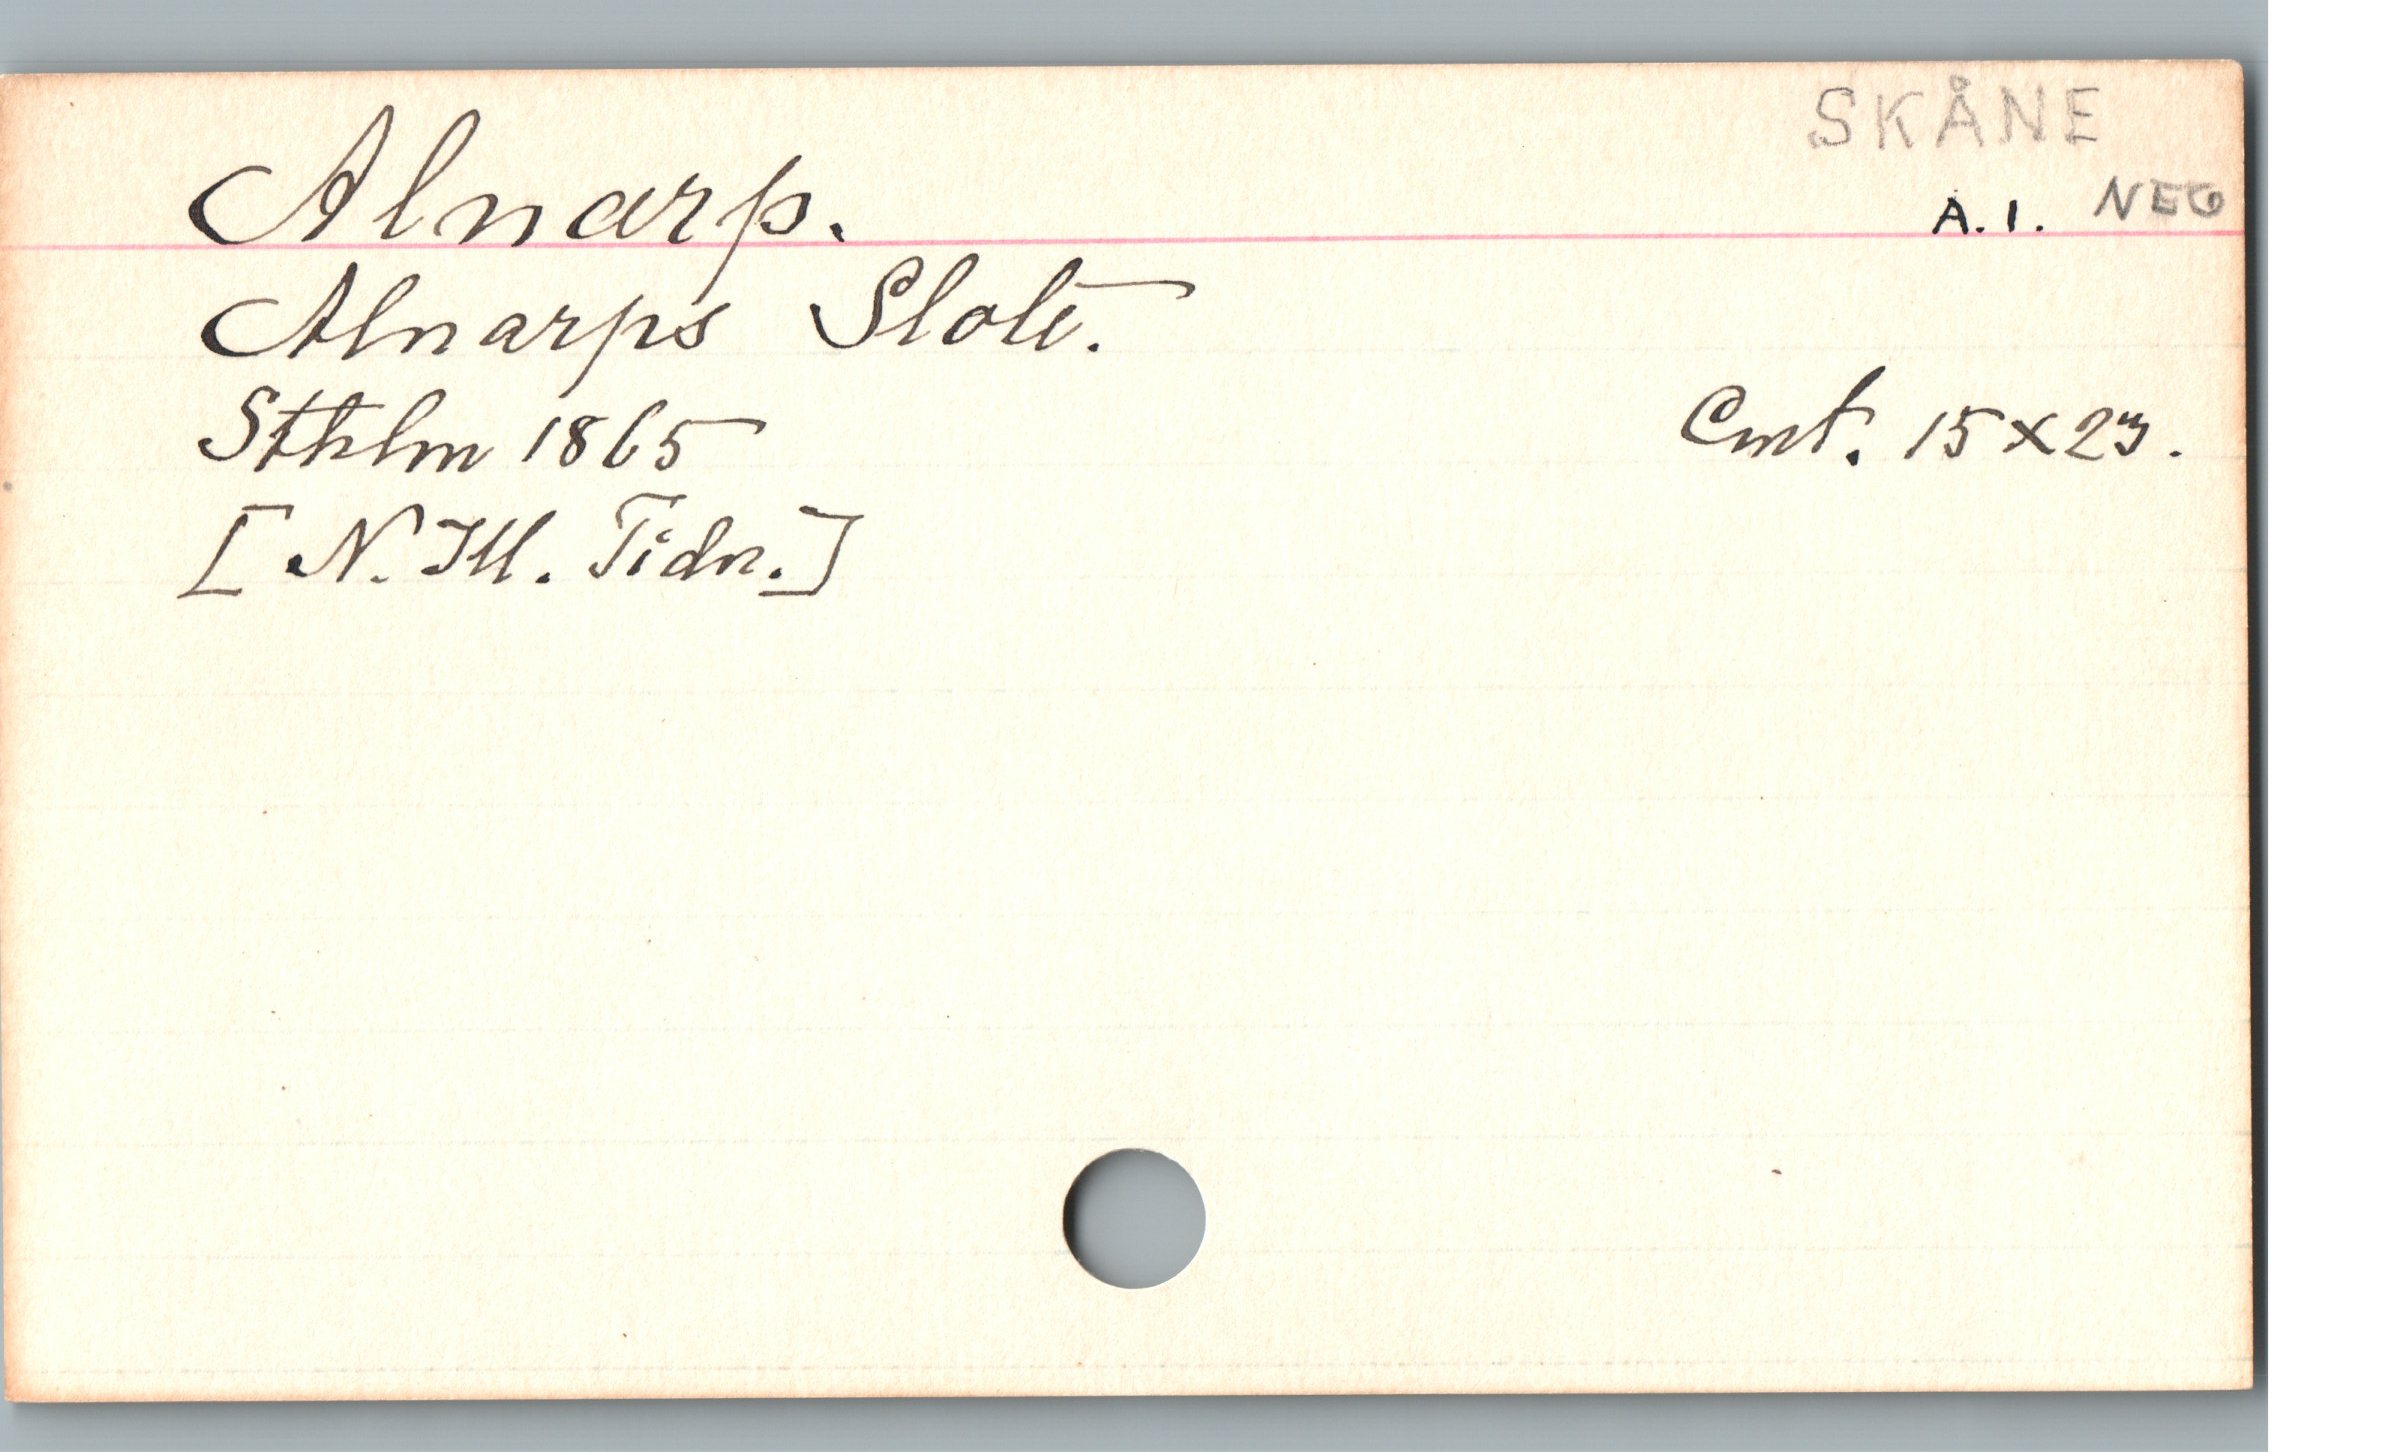 SKÅNE
Alnarp. A. 1. NEG
Alnarps Slott.
Sthlm 1865 Cmt. 15 x 23.
[N. Ill. Tidn.]